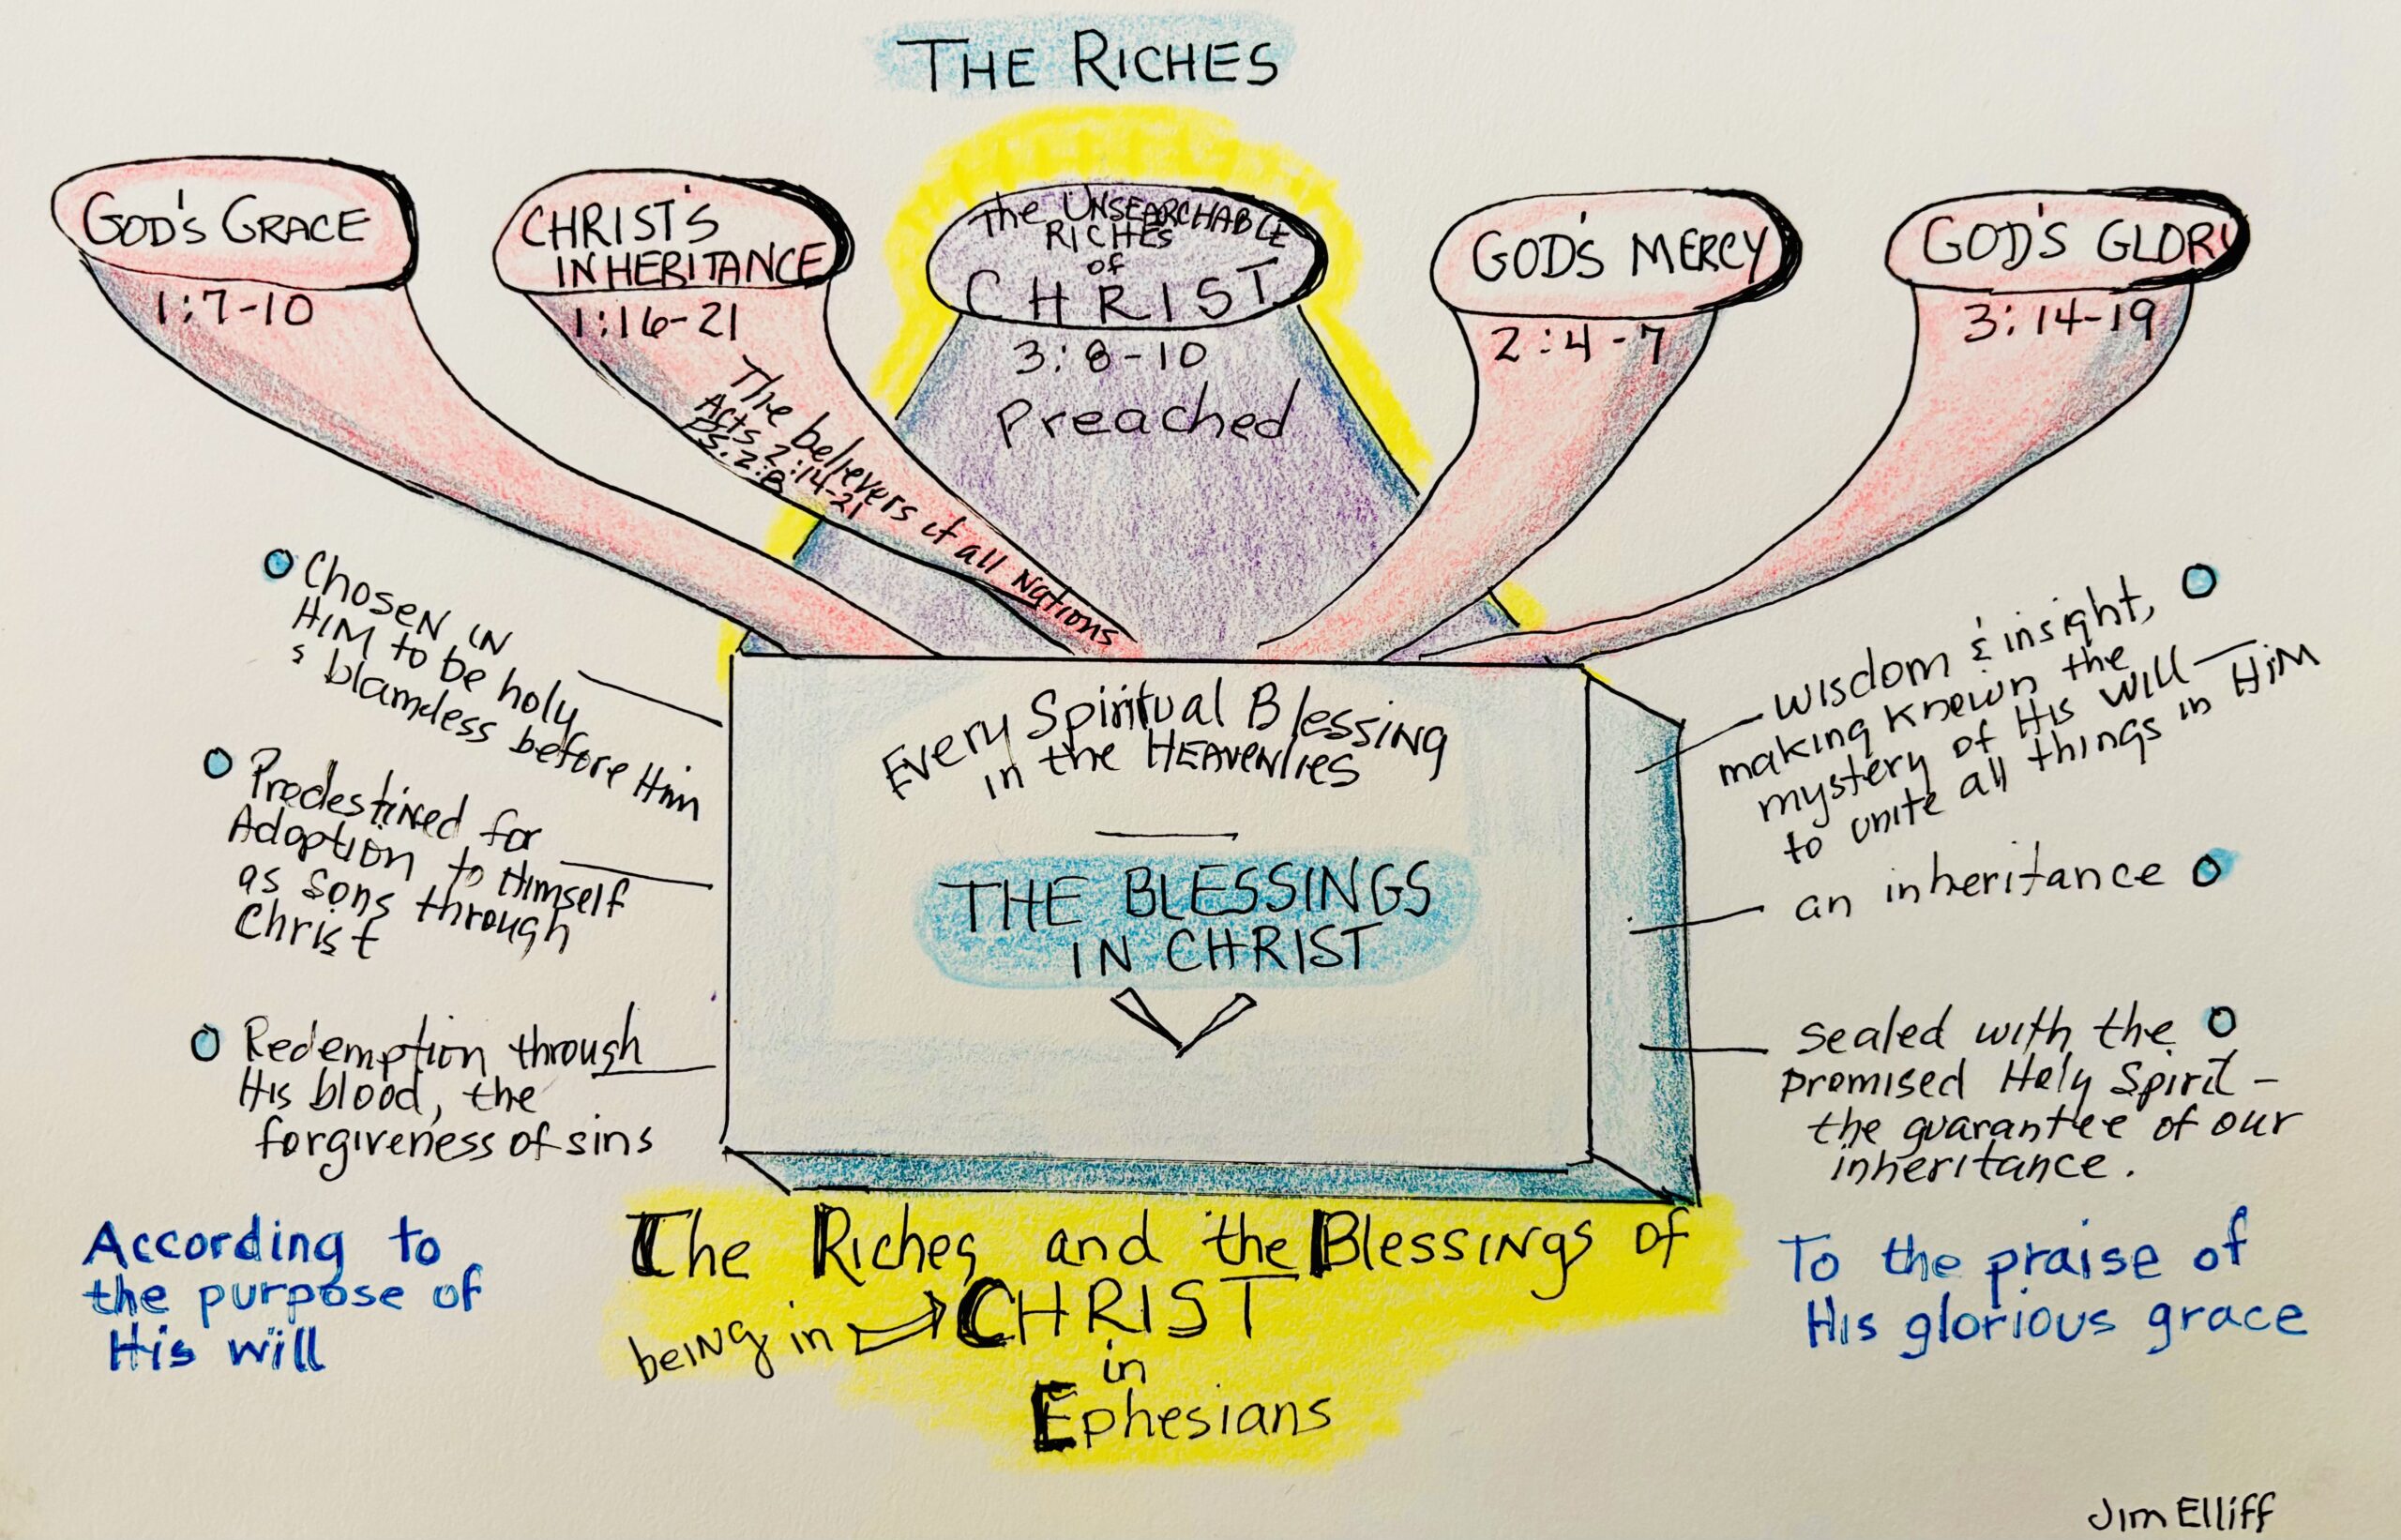 THE RICHES
GOD'S GRACE
1:7-10
CHRIST'S
INHERITANCE
1:16-21
The believers of all Nations
Acts 2:14-21
PS. 2:8
The UNSEARCHABLE
RICHES
of
CHRIST
3:8-10
Preached
GOD'S MERCY
2:4-7
GOD'S GLORY
3:14-19
Chosen in
Him to be holy
& blameless before Him
Predestined for
Adoption to Himself
as sons through
Christ
Redemption through
His blood, the
forgiveness of sins
Every Spiritual Blessing
in the HEAVENLIES
THE BLESSINGS
IN CHRIST
wisdom & insight,
making known the
mystery of His will—
to unite all things in HIM
an inheritance
sealed with the
promised Holy Spirit -
the guarantee of our
inheritance.
According to
the purpose of
His will
The Riches and the Blessings of
being in CHRIST
in
Ephesians
To the praise of
His glorious grace
Jim Elliff